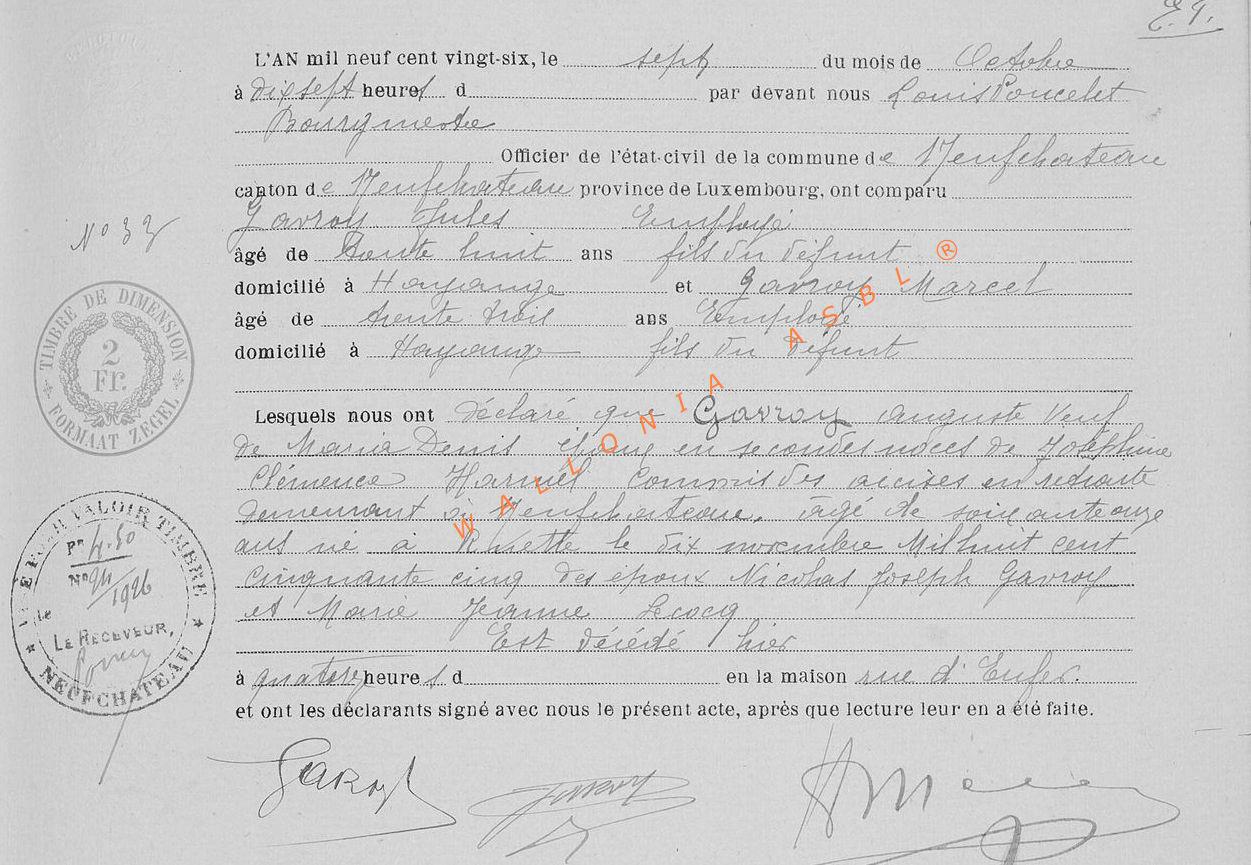 L'AN mil neuf cent vingt-six, le sept du mois de Octobre
à Dixsept heures d par devant nous Louis Poncelet
Bourgmestre
Officier de l'état-civil de la commune de Neufchateau
canton de Neufchateau province de Luxembourg, ont comparu
Gavroy Jules Employé
N° 33
âgé de trente huit ans fils du défunt
domicilié à Hayange et Gavroy Marcel
âgé de trente trois ans Employé
domicilié à Hayange fils du défunt
Lesquels nous ont déclaré que Gavroy Auguste Veuf
de Maria Denis époux en secondes noces de Joséphine
Clémence Harnel Commis des accises en retraite
demeurant à Neufchateau, âgé de soixante onze
ans né à Rulette le dix novembre Mil huit cent
cinquante cinq des époux Nicolas Joseph Gavroy
et Marie Jeanne Lecocq
Est décédé hier
à quatorze heures d en la maison rue d'Enfer.
et ont les déclarants signé avec nous le présent acte, après que lecture leur en a été faite.
Gavroy
Gavroy
TIMBRE DE DIMENSION
2
Fr.
FORMAAT ZEGEL
VALOIR TIMBRE
Pr 4.50
N° 94/1926
le
LE RECEVEUR,
NEUFCHATEAU
WALLONIA ASBL ®